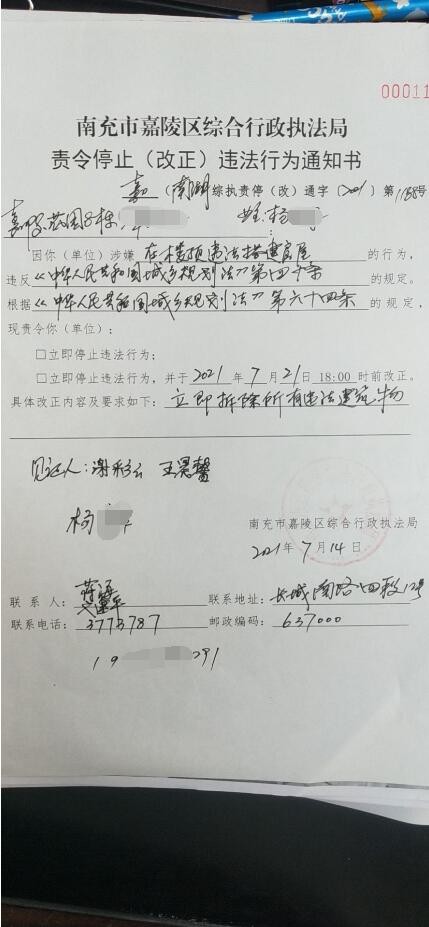 00011
南充市嘉陵区综合行政执法局
责令停止（改正）违法行为通知书
嘉（南湖）综执责停（改）通字〔2021〕第1158号
因你（单位）涉嫌 在楼顶违法搭建房屋 的行为，
违反《中华人民共和国城乡规划法》第四十条 的规定。
根据《中华人民共和国城乡规划法》第六十四条 的规定，
现责令你（单位）：
□立即停止违法行为；
□立即停止违法行为，并于2021年7月21日18:00时前改正。
具体改正内容及要求如下：立即拆除所有违法建筑物
见证人：谢彩云 王昊馨
杨
南充市嘉陵区综合行政执法局
2021年7月14日
联系人：
联系地址：长城南路四段12号
联系电话：3773787
邮政编码：637000